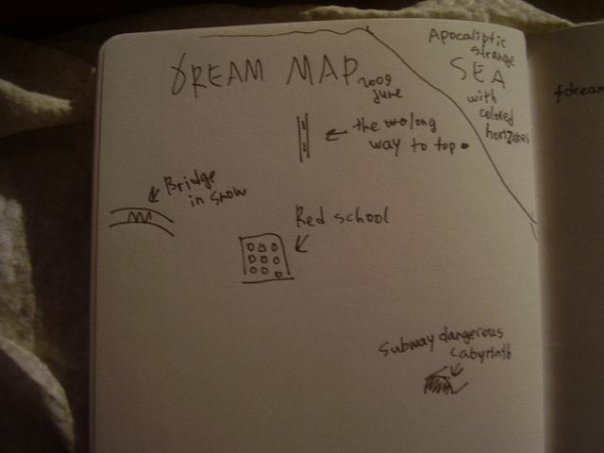 DREAM MAP
2009
june
Apocaliptic
strange
SEA
with
colored
horizones
the long
way to top
Bridge
in snow
Red school
Subway dangerous
Labyrinth